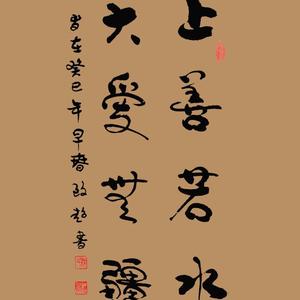 上善若水
大愛無疆
旹在癸巳年早春 書